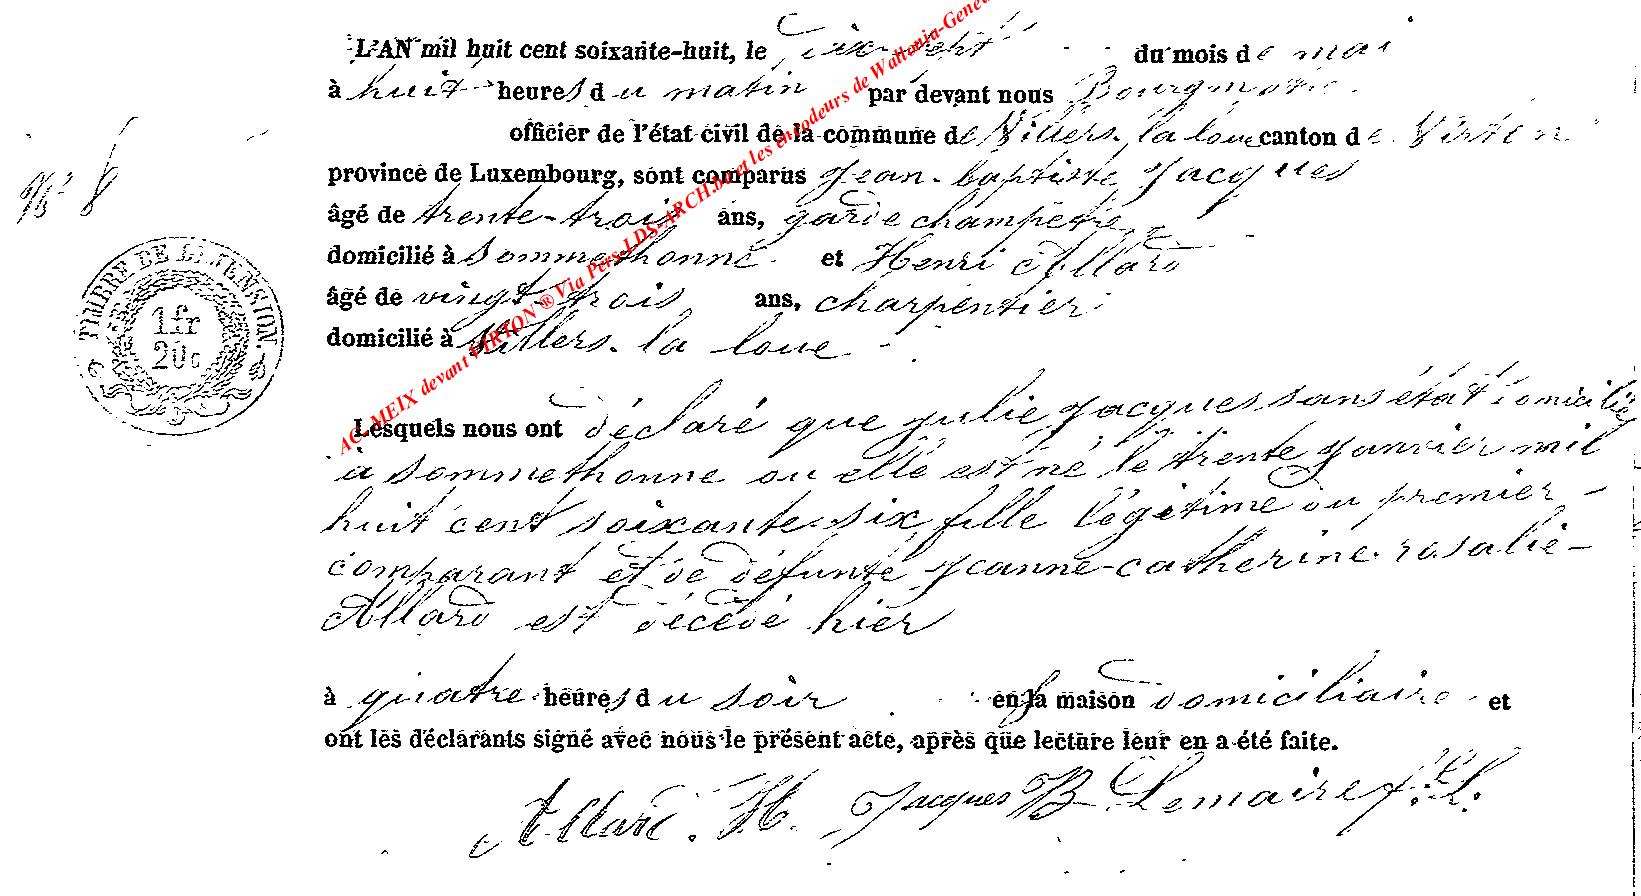 L'AN mil huit cent soixante-huit, le dix-sept du mois de mai
à huit heures du matin par devant nous Bourgmestre
officier de l'état civil de la commune de Villers la loue canton de Virton
province de Luxembourg, sont comparus Jean-baptiste Jacques
N° 8
âgé de trente-trois ans, garde champetre
domicilié à Sommethonne et Henri Allard
âgé de vingt-trois ans, charpentier
domicilié à Villers-la loue
TIMBRE DE DIMENSION
1 fr
20 c
Lesquels nous ont déclaré que Julie Jacques sans état domicilié
à Sommethonne ou elle est né le trente Janvier mil
huit cent soixante six fille légitime du premier
comparant et de défunte Jeanne-catherine rosalie
Allard est décédé hier
à quatre heures du soir en sa maison domiciliaire et
ont les déclarants signé avec nous le présent acte, après que lecture leur en a été faite.
Allard. H. Jacques JB Lemaire f. L.
AC MEIX devant VIRTON ® Via Pers-LDS-ARCH.be et les encodeurs de Wallonia-Gene